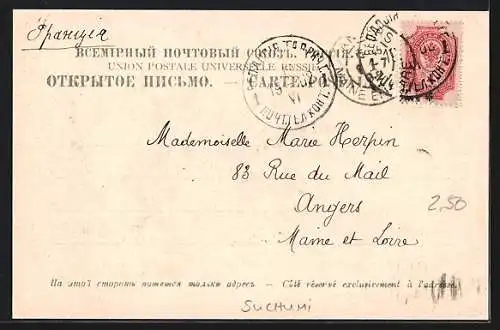 Франція
ВСЕМІРНЫЙ ПОЧТОВЫЙ СОЮЗЪ.
UNION POSTALE UNIVERSELLE RUSSIE
ОТКРЫТОЕ ПИСЬМО. — CARTE POSTALE
Mademoiselle Marie Herpin
83 Rue du Mail
Angers
2,50
Maine et Loire
На этой сторонѣ пишется только адресъ. — Côté réservé exclusivement à l'adresse.
SUCHUMI